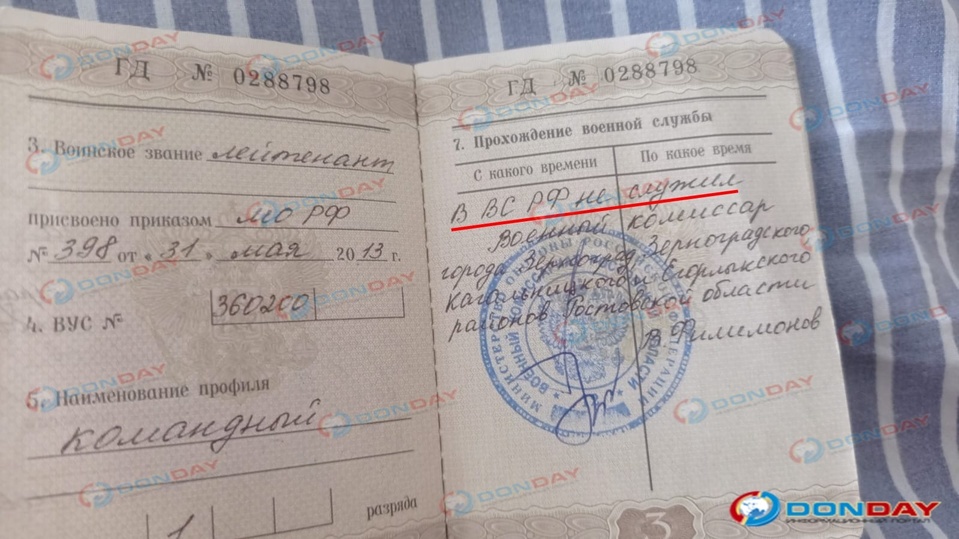 ГД № 0288798
3. Воинское звание лейтенант
присвоено приказом МО РФ
№ 398 от « 31 » мая 2013 г.
4. ВУС № 360200
5. Наименование профиля
командный
1 разряда
ГД № 0288798
7. Прохождение военной службы
С какого времени По какое время
В ВС РФ не служил
Военный комиссар
города Зерноград, Зерноградского
Кагальницкого и Егорлыкского
районов Ростовской области
В. Филимонов
3
DONDAY
ИНФОРМАЦИОННЫЙ ПОРТАЛ